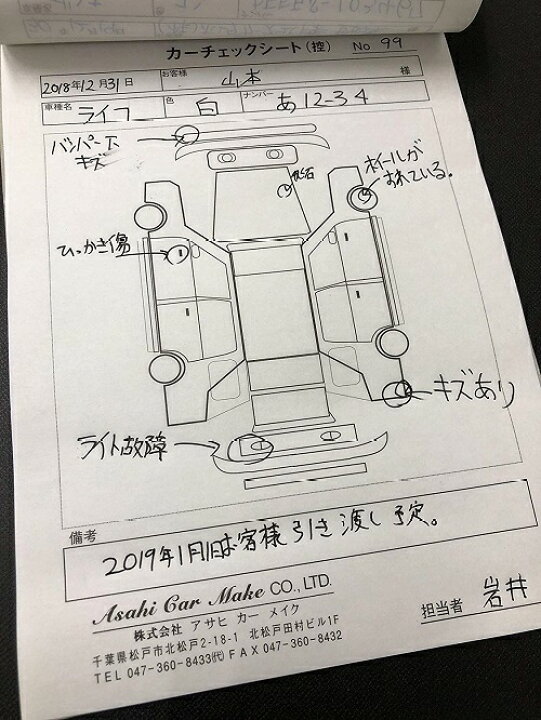 カーチェックシート(控) No 99
2018年12月31日 お客様 山本 様
車種名 ライフ 色 白 ナンバー あ12-34
バンパー下
キズ
飛石
ホイールが
おれている。
ひっかき傷
キズあり
ライト故障
備考
2019年1月1日お客様引き渡し予定。
Asahi Car Make CO., LTD.
株式会社 アサヒ カー メイク
千葉県松戸市北松戸2-18-1 北松戸田村ビル1F
TEL 047-360-8433(代) FAX 047-360-8432
担当者 岩井